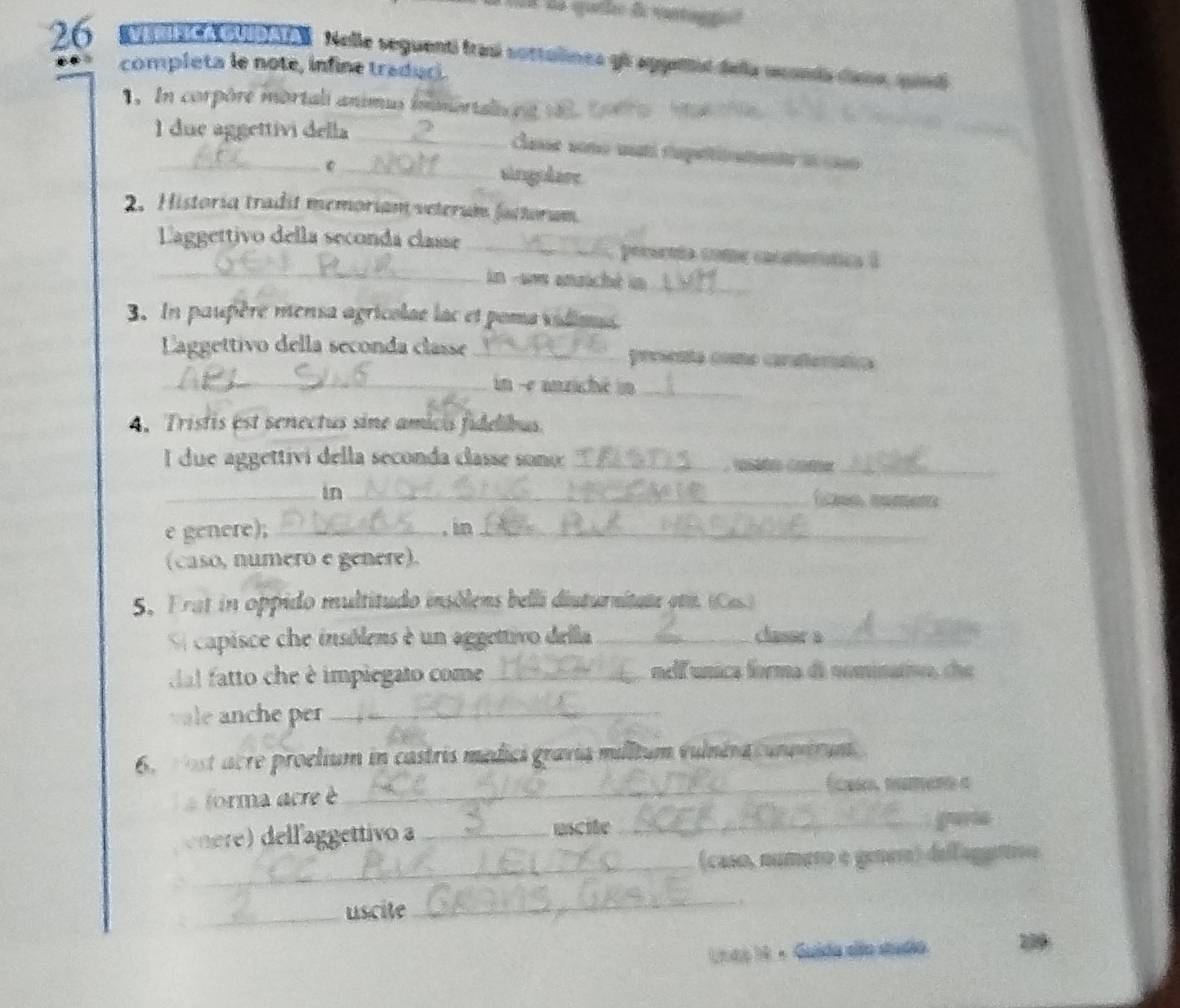 26 VERIFICA GUIDATA Nelle seguenti frasi sottolinea gli aggettivi della seconda classe, quindi
completa le note, infine traduci.
1. In corpore mortali animus immortalis est.
I due aggettivi della 2 classe sono usati rispettivamente in caso
ABL e NOM singolare.
2. Historia tradit memoriam veterum factorum.
L'aggettivo della seconda classe presenta come caratteristica il
GEN PLUR in -um anziché in IUM
3. In paupere mensa agricolae lac et poma vidimus.
L'aggettivo della seconda classe PAUPERE presenta come caratteristica
ABL SING in -e anziché in I
4. Tristis est senectus sine amicis fidelibus.
I due aggettivi della seconda classe sono: TRISTIS, usato come NOME
in NOM. SING (caso, numero
e genere); , in PLUR
(caso, numero e genere).
5. Erat in oppido multitudo insolens belli diuturnitate otii. (Ces.)
Si capisce che insolens è un aggettivo della 2 classe a 1
dal fatto che è impiegato come nell'unica forma di nominativo, che
vale anche per IL
6. Post acre proelium in castris medici gravia militum vulnera curaverunt.
La forma acre è ACC SING NEUTRO (caso, numero e
genere) dell'aggettivo a 3 uscite ; gravia
ACC PLUR NEUTRO (caso, numero e genere) dell'aggettivo
2 uscite GRAVIS, GRAVE.
Guida allo studio